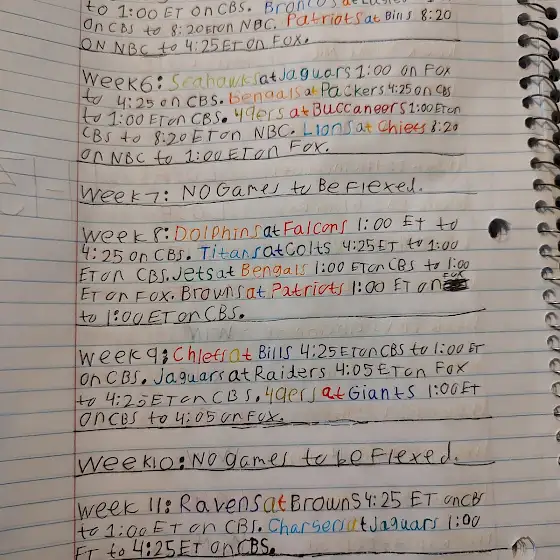 to 1:00 ET on CBS. Broncos at
on CBS to 8:20 ET on NBC. Patriots at Bills 8:20
ON NBC to 4:25 ET on Fox.
Week 6: Seahawks at Jaguars 1:00 on Fox
to 4:25 on CBS. Bengals at Packers 4:25 on CBS
to 1:00 ET on CBS. 49ers at Buccaneers 1:00 ET on
CBS to 8:20 ET on NBC. Lions at Chiefs 8:20
on NBC to 1:00 ET on Fox.
Week 7: NO Games to Be Flexed.
Week 8: Dolphins at Falcons 1:00 ET to
4:25 on CBS. Titans at Colts 4:25 ET to 1:00
ET on CBS. Jets at Bengals 1:00 ET on CBS to 1:00
ET on Fox. Browns at Patriots 1:00 ET on Fox
to 1:00 ET on CBS.
Week 9: Chiefs at Bills 4:25 ET on CBS to 1:00 ET
on CBS. Jaguars at Raiders 4:05 ET on Fox
to 4:25 ET on CBS. 49ers at Giants 1:00 ET
on CBS to 4:05 on Fox.
Week 10: NO games to be Flexed.
Week 11: Ravens at Browns 4:25 ET on CBS
to 1:00 ET on CBS. Chargers at Jaguars 1:00
ET to 4:25 ET on CBS.